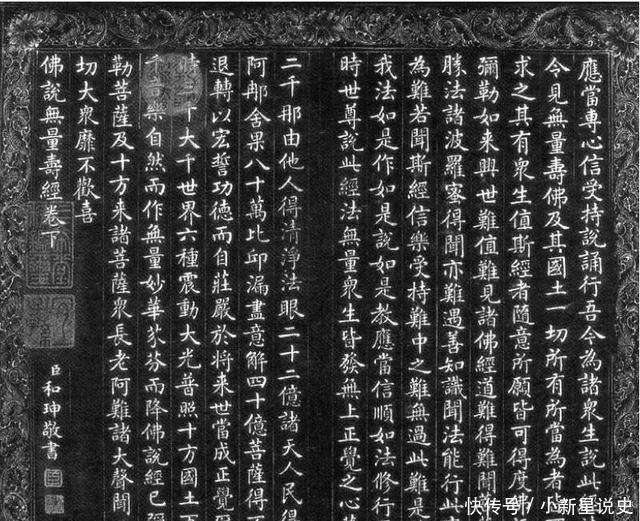 應當專心信受持說誦行吾今為諸衆生說此
令見無量壽佛及其國土一切所有所當為者
求之其有衆生值斯經者隨意所願皆可得度佛
彌勒如來興世難值難見諸佛經道難得難聞
勝法諸波羅蜜得聞亦難遇善知識聞法能行此
為難若聞斯經信樂受持難中之難無過此難是
我法如是作如是說如是教應當信順如法修行
時世尊說此經法無量衆生皆發無上正覺之心
二千那由他人得清淨法眼二十二億諸天人民得
阿那含果八十萬比邱漏盡意解四十億菩薩得
退轉以宏誓功德而自莊嚴於將来世當成正覺
時三千大千世界六種震動大光普照十方國土
千音樂自然而作無量妙華芬芬而降佛說經已
勒菩薩及十方来諸菩薩衆長老阿難諸大聲聞
切大衆靡不歡喜
佛說無量壽經卷下
臣和珅敬書
快传号/小新星说史